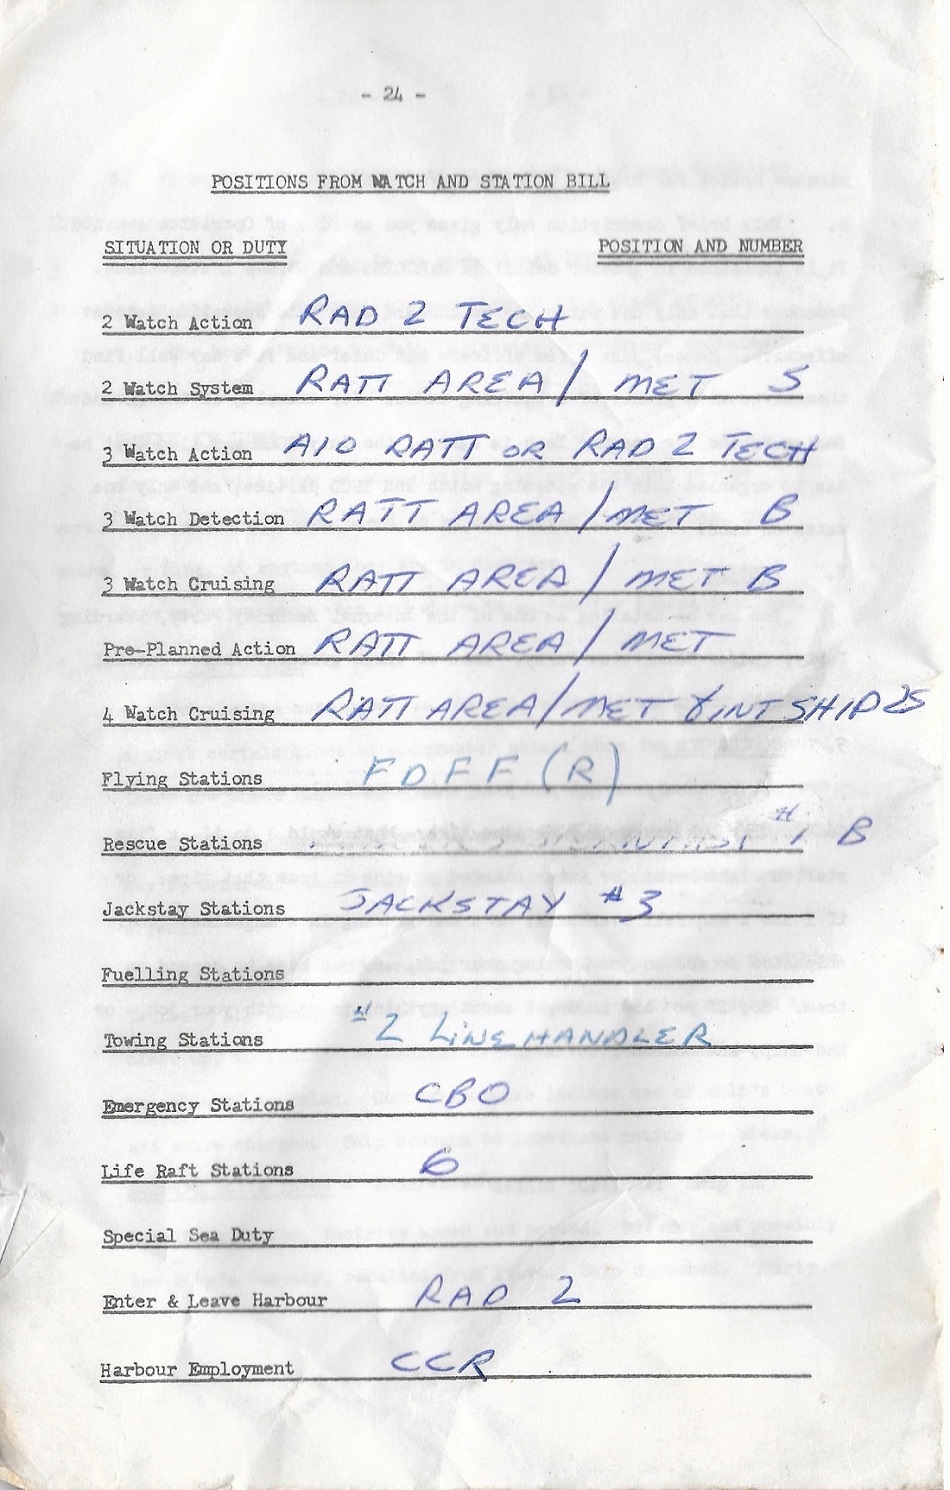 - 24 -
POSITIONS FROM WATCH AND STATION BILL
SITUATION OR DUTY POSITION AND NUMBER
2 Watch Action RAD 2 TECH
2 Watch System RATT AREA / MET S
3 Watch Action AIO RATT OR RAD 2 TECH
3 Watch Detection RATT AREA / MET B
3 Watch Cruising RATT AREA / MET B
Pre-Planned Action RATT AREA / MET
4 Watch Cruising RATT AREA / MET INT SHIP 2S
Flying Stations FDFF (R)
Rescue Stations #1 B
Jackstay Stations JACKSTAY #3
Fuelling Stations
Towing Stations #2 LINE HANDLER
Emergency Stations CBO
Life Raft Stations 6
Special Sea Duty
Enter & Leave Harbour RAD 2
Harbour Employment CCR